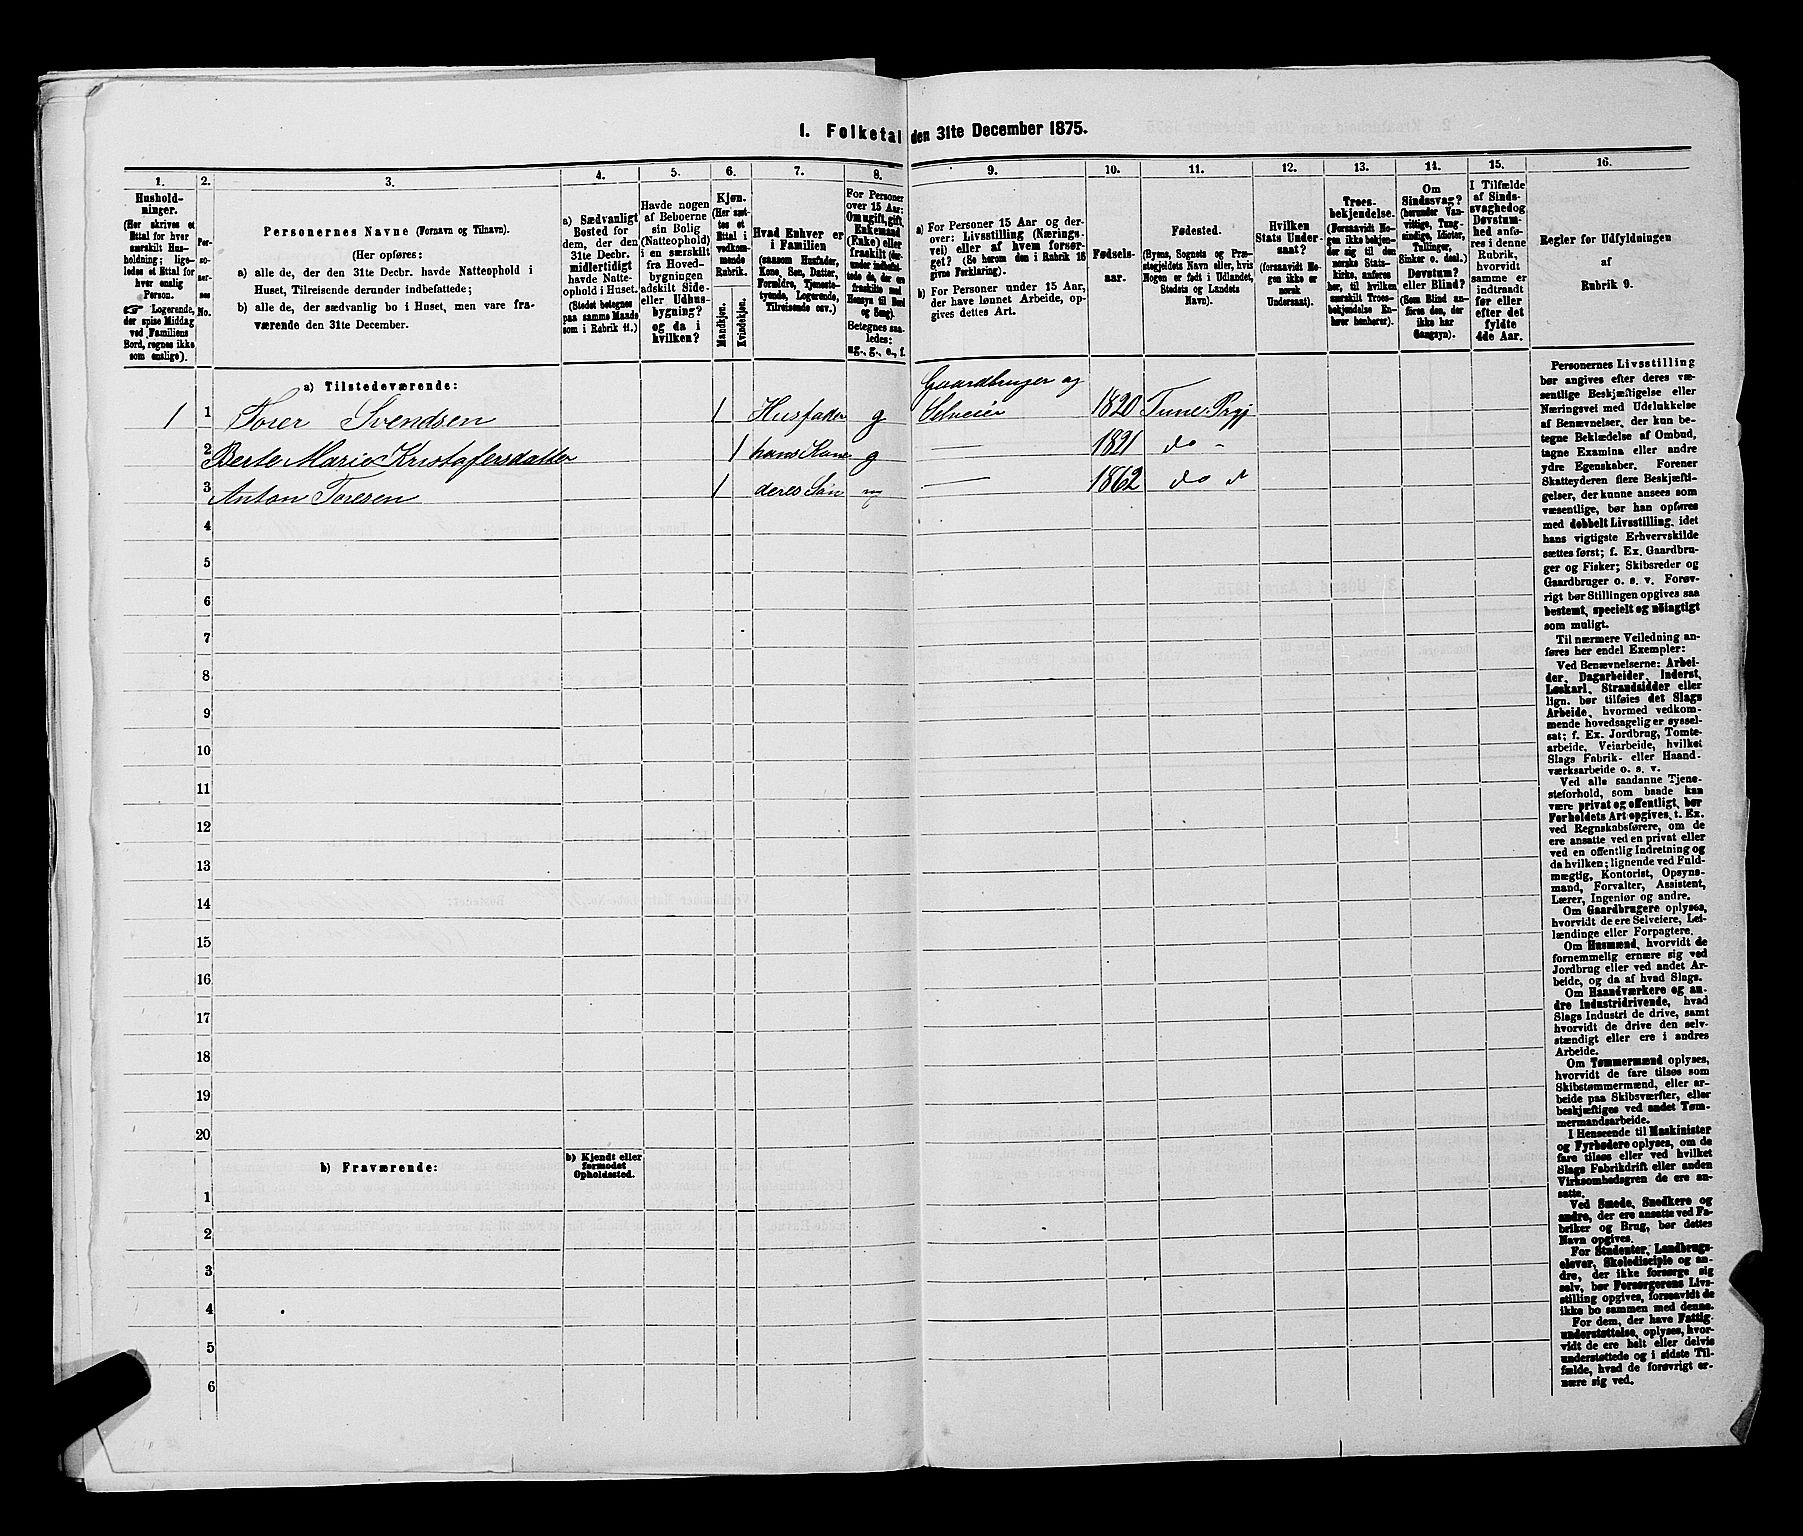 1. Folketal den 31te December 1875.
1. 2. 3. 4. 5. 6. 7. 8. 9. 10. 11. 12. 13. 14. 15. 16.
Hushold-
ninger.
(Her skrives et
Ettal for hver
særskilt Hus-
holdning; lige-
ledes et Ettal for
hver enslig
Person.
☞ Logerende,
der spise Middag
ved Familiens
Bord, regnes ikke
som enslige).
Per-
so-
ner-
nes
No.
Personernes Navne (Fornavn og Tilnavn).
(Her opføres:
a) alle de, der den 31te Decbr. havde Natteophold i
Huset, Tilreisende derunder indbefattede;
b) alle de, der sædvanlig bo i Huset, men vare fra-
værende den 31te December.
a) Sædvanligt
Bosted for
dem, der den
31te Decbr.
midlertidigt
havde Natte-
ophold i Huset.
(Stedet betegnes
paa samme Maade
som i Rubrik 11.)
Havde nogen
af Beboerne
sin Bolig
(Natteophold)
i en særskilt
fra Hoved-
bygningen
adskilt Side-
eller Udhus-
bygning?
og da i
hvilken?
Kjøn.
(Her sæt-
tes et
Ettal i
vedkom-
mende
Rubrik.
Mandkjøn.
Kvindekjøn.
Hvad Enhver er
i Familien
(saasom Husfader,
Kone, Søn, Datter,
Forældre, Tjeneste-
tyende, Logerende,
Tilreisende osv.)
For Personer
over 15 Aar:
Om ugift, gift,
Enkemand
(Enke) eller
fraskilt (der-
under indbefat-
tede de, der ere
fraskilte med
Hensyn til Bord
og Seng).
Betegnes saa-
ledes:
ug., g., e., f.
a) For Personer 15 Aar og der-
over: Livsstilling (Nærings-
vei) eller af hvem forsør-
get? (Se herom den i Rubrik 16
givne Forklaring).
b) For Personer under 15 Aar,
der have lønnet Arbeide, op-
gives dettes Art.
Fødsels-
aar.
Fødested.
(Byens, Sognets og Præ-
stegjeldets Navn eller, hvis
Nogen er født i Udlandet,
Stedets og Landets
Navn).
Hvilken
Stats Under-
saat?
(forsaavidt No-
gen ikke er
norsk
Undersaat).
Troes-
bekjendelse.
(Forsaavidt No-
gen ikke bekjen-
der sig til den
norske Stats-
kirke, anføres
her, til hvilken
særskilt Troes-
bekjendelse En-
hver henhører).
Om
Sindssvag?
(herunder Van-
vittige, Tung-
sindige, Idioter,
Tullinger,
Sinker o. desl.)
Døvstum?
eller Blind?
(Som Blind an-
føres den, der
ikke har
Gangsyn).
I Tilfælde
af Sinds-
svaghed og
Døvstum-
hed anfø-
res i denne
Rubrik,
hvorvidt
samme er
indtraadt
før eller
efter det
fyldte
4de Aar.
Regler for Udfyldningen
af
Rubrik 9.
a) Tilstedeværende:
1 1 Torer Svendsen 1 Husfader g Gaardbruger og Selveier 1820 Tune Prgj
2 Berte Marie Kristofersdatter 1 hans Kone g — 1821 do -
3 Anton Toresen 1 deres Søn ug — 1862 do
4
5
6
7
8
9
10
11
12
13
14
15
16
17
18
19
20
b) Fraværende:
b) Kjendt eller
formodet
Opholdssted.
1
2
3
4
5
6
Personernes Livsstilling
bør angives efter deres væ-
sentlige Beskjæftigelse eller
Næringsvei med Udelukkelse
af Benævnelser, der kun be-
tegne Beklædelse af Ombud,
tagne Examina eller andre
ydre Egenskaber. Forener
Skatteyderen flere Beskjæfti-
gelser, der kunne ansees som
væsentlige, bør han opføres
med dobbelt Livsstilling, idet
hans vigtigste Erhvervskilde
sættes først; f. Ex. Gaardbru-
ger og Fisker; Skibsreder og
Gaardbruger o. s. v. Forøv-
rigt bør Stillingen opgives saa
bestemt, specielt og nøiagtigt
som muligt.
Til nærmere Veiledning an-
føres her endel Exempler:
Ved Benævnelserne: Arbei-
der, Dagarbeider, Inderst,
Løskarl, Strandsidder eller
lign. bør tilføies det Slags
Arbeide, hvormed vedkom-
mende hovedsagelig er syssel-
sat; f. Ex. Jordbrug, Tomte-
arbeide, Veiarbeide, hvilket
Slags Fabrik- eller Haand-
værksarbeide o. s. v.
Ved alle saadanne Tjene-
steforhold, som baade kan
være privat og offentligt, bør
Forholdets Art opgives, t. Ex.
ved Regnskabsførere, om de
ere ansatte ved en privat eller
ved en offentlig Indretning og
da hvilken; lignende ved Fuld-
mægtig, Kontorist, Opsyns-
mand, Forvalter, Assistent,
Lærer, Ingeniør og andre.
Om Gaardbrugere oplyses,
hvorvidt de ere Selveiere, Lei-
lændinge eller Forpagtere.
Om Husmænd, hvorvidt de
fornemmelig ernære sig ved
Jordbrug eller ved andet Ar-
beide, og da af hvad Slags.
Om Haandværkere og an-
dre Industridrivende, hvad
Slags Industri de drive, samt
hvorvidt de drive den selv-
stændigt eller ere i andres
Arbeide.
Om Tømmermænd oplyses,
hvorvidt de fare tilsøs som
Skibstømmermænd, eller ar-
beide paa Skibsværfter, eller
beskjæftiges ved andet Tøm-
mermandsarbeide.
I Henseende til Maskinister
og Fyrbødere oplyses, om de
fare tilsøs eller ved hvilket
Slags Fabrikdrift eller anden
Virksomhedsgren de ere an-
satte.
Ved Smede, Snedkere og
andre, der ere ansatte ved Fa-
briker og Brug, bør dettes
Navn opgives.
For Studenter, Landbrugs-
elever, Skoledisciple og an-
dre, der ikke forsørge sig
selv, bør Forsørgerens Livs-
stilling opgives, forsaavidt de
ikke bo sammen med denne.
For dem, der have Fattig-
understøttelse, oplyses, hvor-
vidt de ere helt eller delvis
understøttede og i sidste Til-
fælde, hvad de forøvrigt er-
nære sig ved.